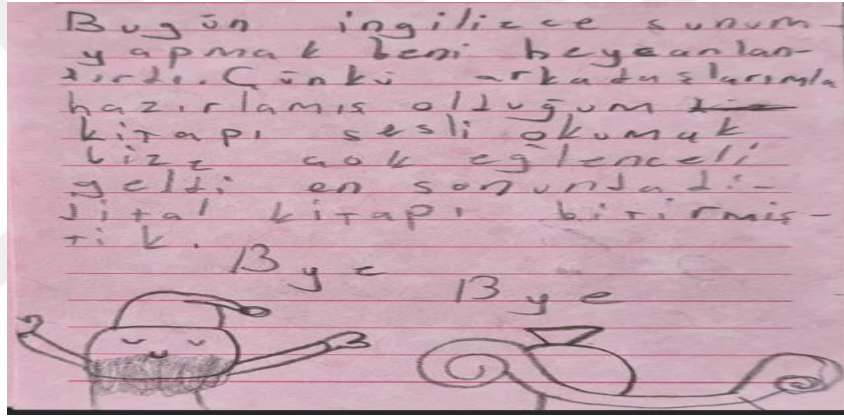 Bugün ingilizce sunum
yapmak beni heyecanlan-
dırdı. Çünkü arkadaşlarımla
hazırlamış olduğum
kitapı sesli okumak
bize çok eğlenceli
geldi en sonunda di-
jital kitapı bitirmiş-
tik.
Bye
Bye